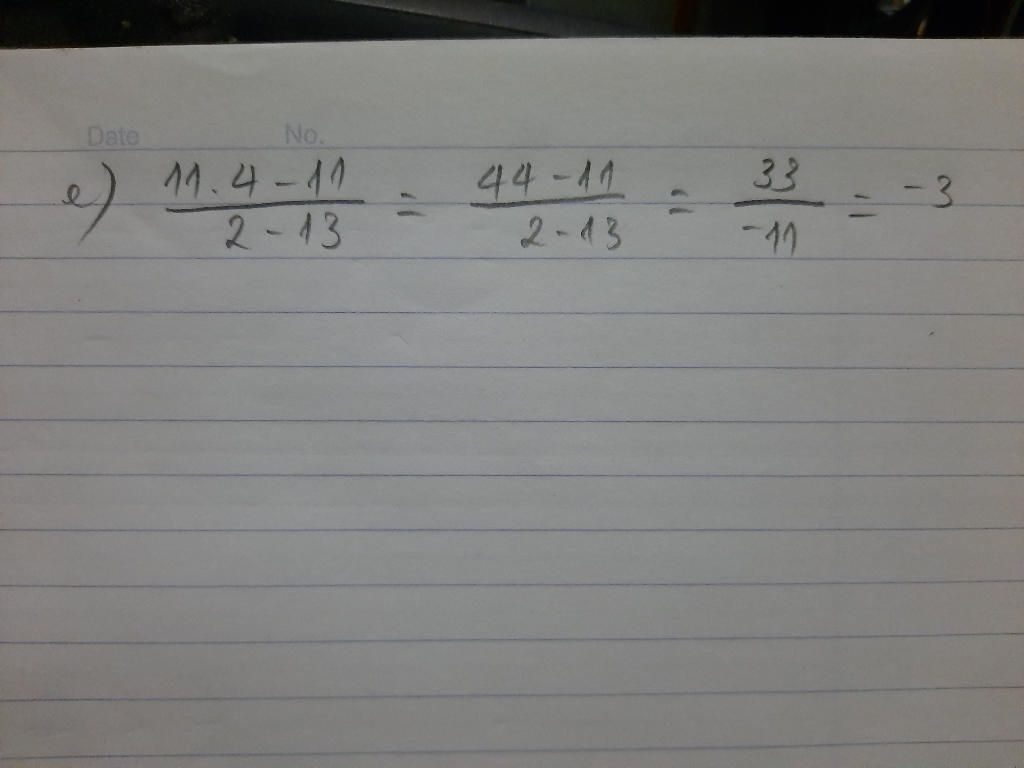 Date No.
e) \frac{11.4-11}{2-13} = \frac{44-11}{2-13} = \frac{33}{-11} = -3